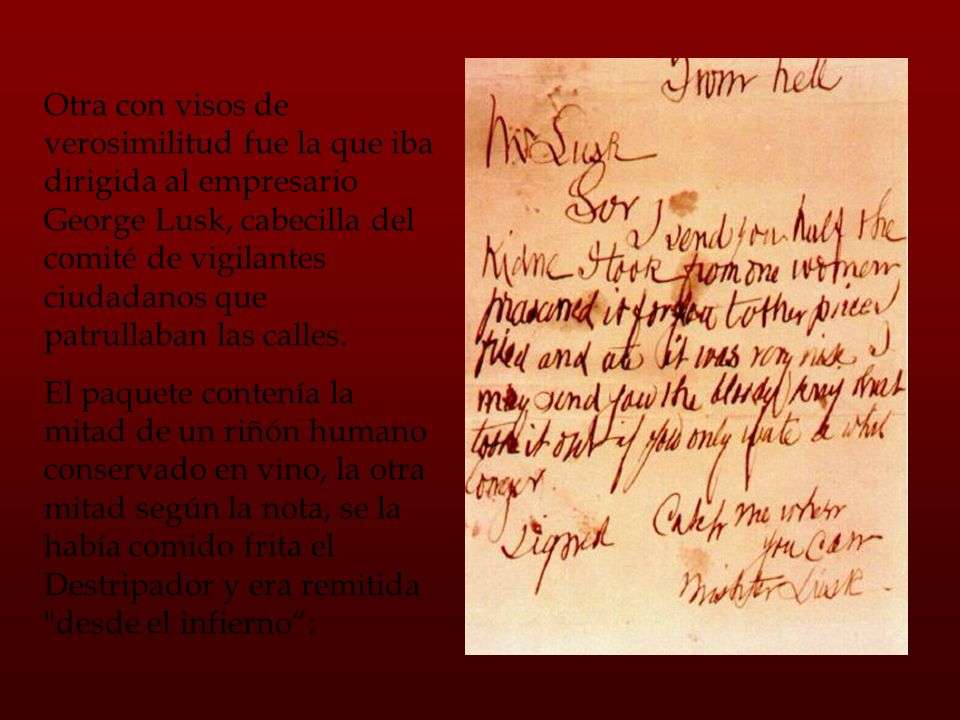 Otra con visos de
verosimilitud fue la que iba
dirigida al empresario
George Lusk, cabecilla del
comité de vigilantes
ciudadanos que
patrullaban las calles.
El paquete contenía la
mitad de un riñón humano
conservado en vino, la otra
mitad según la nota, se la
había comido frita el
Destripador y era remitida
"desde el infierno”:
From hell
Mr Lusk
Sor
I send you half the
Kidne I took from one women
prasarved it for you tother piece I
fried and ate it was very nise I
may send you the bloody knif that
took it out if you only wate a whil
longer
signed
Catch me when
you can
Mishter Lusk